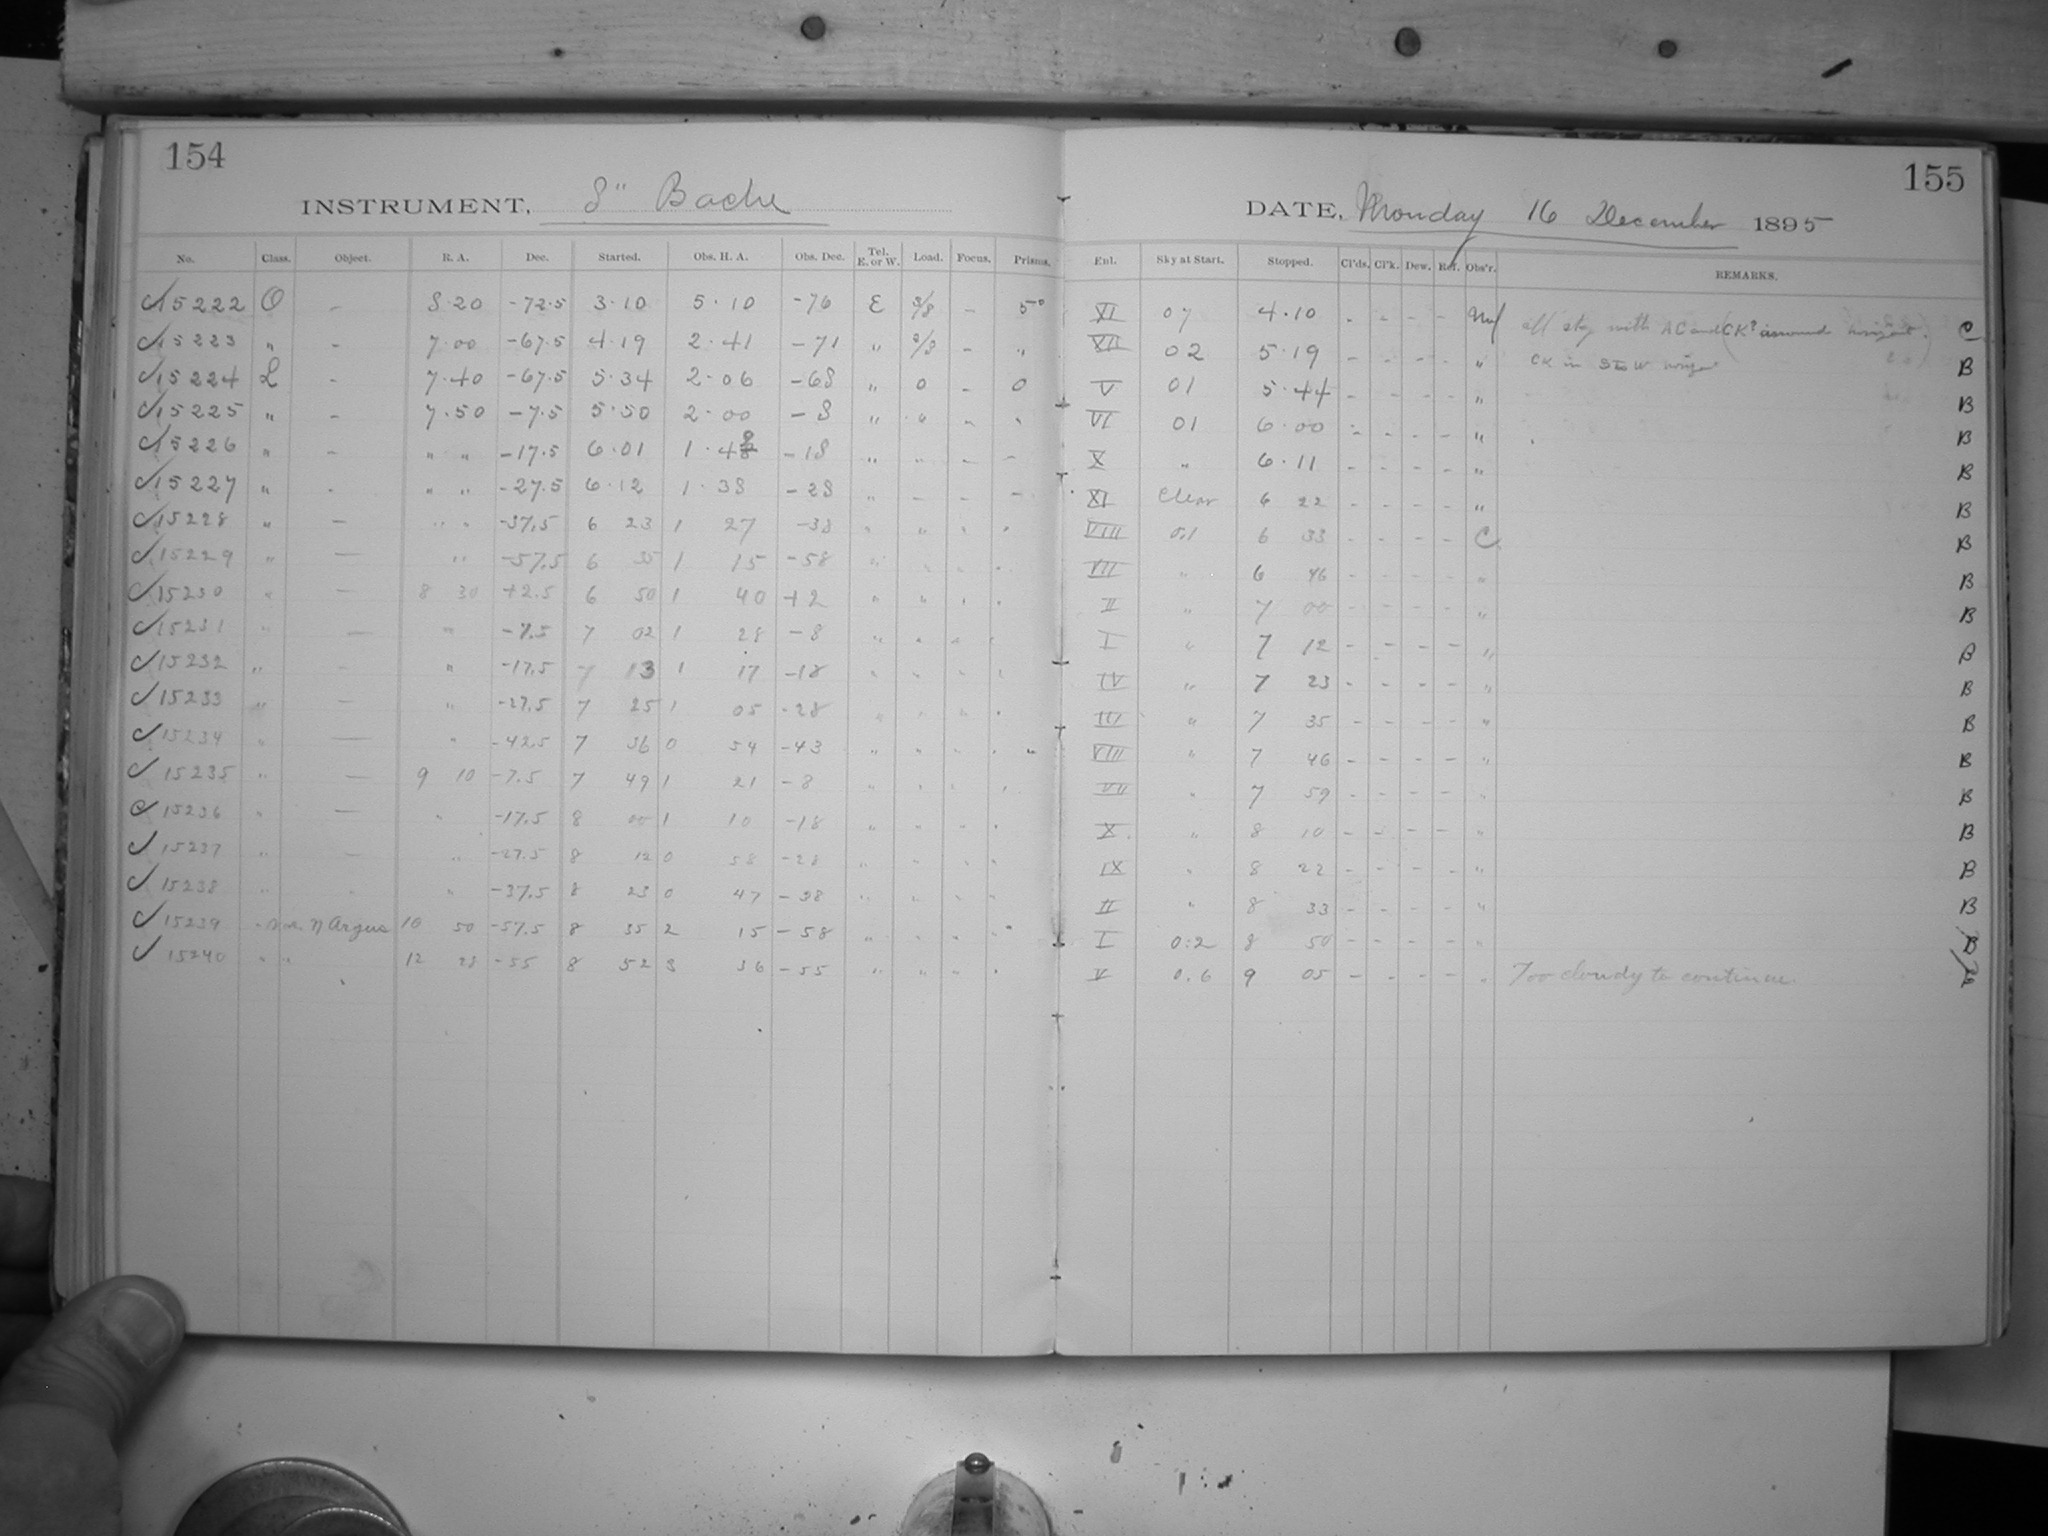 154
INSTRUMENT, 8" Bache
No. Class. Object. R. A. Dec. Started. Obs. H. A. Obs. Dec. Tel. E. or W. Load. Focus. Prisms.
15222 O - 8.20 -72.5 3.10 5.10 -76 E 3/8 - 5°
15223 " - 7.00 -67.5 4.19 2.41 -71 " 3/8 - "
15224 L - 7.40 -67.5 5.34 2.06 -68 " 0 - 0
15225 " - 7.50 -7.5 5.50 2.00 -8 " " " "
15226 " - " " -17.5 6.01 1.48 -18 " " - -
15227 " - " " -27.5 6.12 1.38 -28 " - - -
15228 " - " " -37.5 6 23 1 27 -38 " " " "
15229 " - " -57.5 6 35 1 15 -58 " " " "
15230 " - 8 30 +2.5 6 50 1 40 +2 " " " "
15231 " - " -7.5 7 02 1 28 -8 " " " "
15232 " - " -17.5 7 13 1 17 -18 " " " "
15233 " - " -27.5 7 25 1 05 -28 " " " "
15234 " - " -42.5 7 36 0 54 -43 " " " "
15235 " - 9 10 -7.5 7 49 1 21 -8 " " " "
15236 " - " -17.5 8 00 1 10 -18 " " " "
15237 " - " -27.5 8 12 0 58 -28 " " " "
15238 " - " -37.5 8 23 0 47 -38 " " " "
15239 η Argus 10 50 -57.5 8 35 2 15 -58 " " " "
15240 " " 12 28 -55 8 52 3 36 -55 " " " "
155
DATE, Monday 16 December 1895
Enl. Sky at Start. Stopped. Cl'ds. Cl'k. Dew. Ref. Obs'r. REMARKS.
XI 07 4.10 - - - - all sky with AC and (CK? around horizon.) C
VII 02 5.19 - - - - " CK in S to W horizon B
V 01 5.44 - - - - " B
VI 01 6.00 - - - - " B
X " 6.11 - - - - " B
XI Clear 6 22 - - - - " B
VIII 0.1 6 33 - - - - C. B
VII " 6 46 - - - - " B
II " 7 00 - - - - " B
I " 7 12 - - - - " B
IV " 7 23 - - - - " B
III " 7 35 - - - - " B
VIII " 7 46 - - - - " B
VII " 7 59 - - - - " B
X " 8 10 - - - - " B
IX " 8 22 - - - - " B
II " 8 33 - - - - " B
I 0.2 8 50 - - - - " B
V 0.6 9 05 - - - - " Too cloudy to continue.